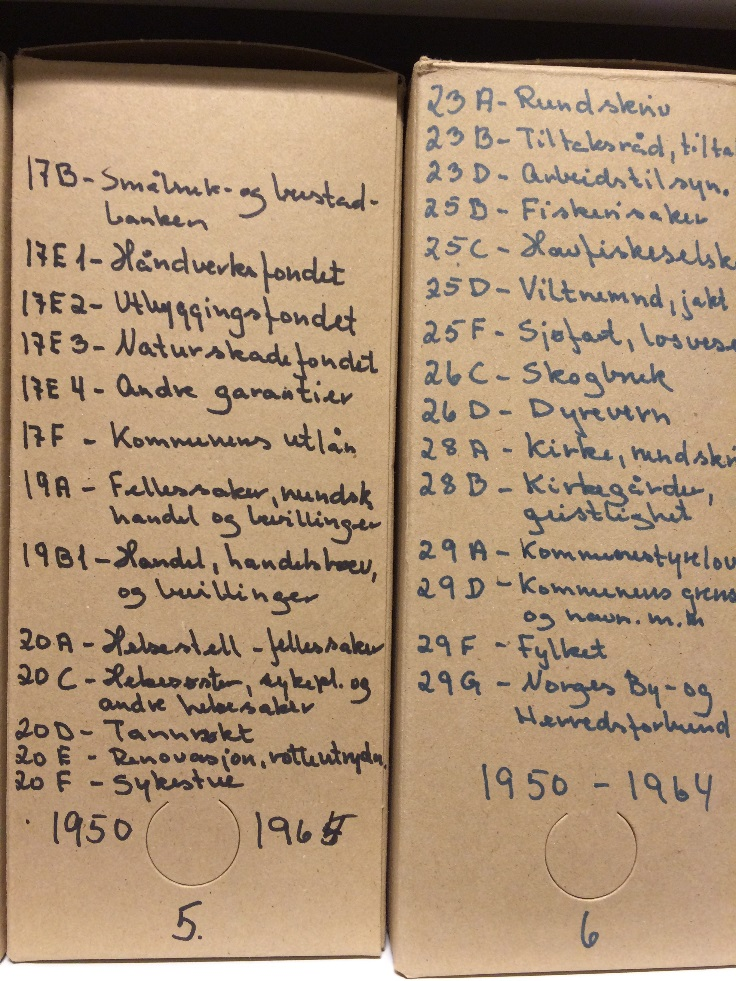 17B - Småbruk- og bustad-
banken
17E 1 - Håndverksfondet
17E 2 - Utbyggingsfondet
17E 3 - Naturskadefondet
17E 4 - Andre garantier
17F - Kommunens utlån
19A - Fellessaker, rundsk,
handel og bevillinger
19B1 - Handel, handelsbrev,
og bevillinger
20A - Helsestell - fellessaker
20C - Helsesøster, sykepl. og
andre helsesaker
20D - Tannrøkt
20E - Renovasjon, rotteutrydn.
20F - Sykestue
1950 1964
5.
23A - Rundskriv
23B - Tiltaksråd, tilta
23D - Arbeidstilsyn.
25B - Fiskerisaker
25C - Havfiskeselsk
25D - Viltnemnd, jakt
25F - Sjøfart, losvese
26C - Skogbruk
26D - Dyrevern
28A - Kirke, rundskri
28B - Kirkegårder,
geistlighet
29A - Kommunestyrelov
29D - Kommunens grens
og navn. m.m
29F - Fylket
29G - Norges By- og
Herredsforbund
1950 - 1964
6